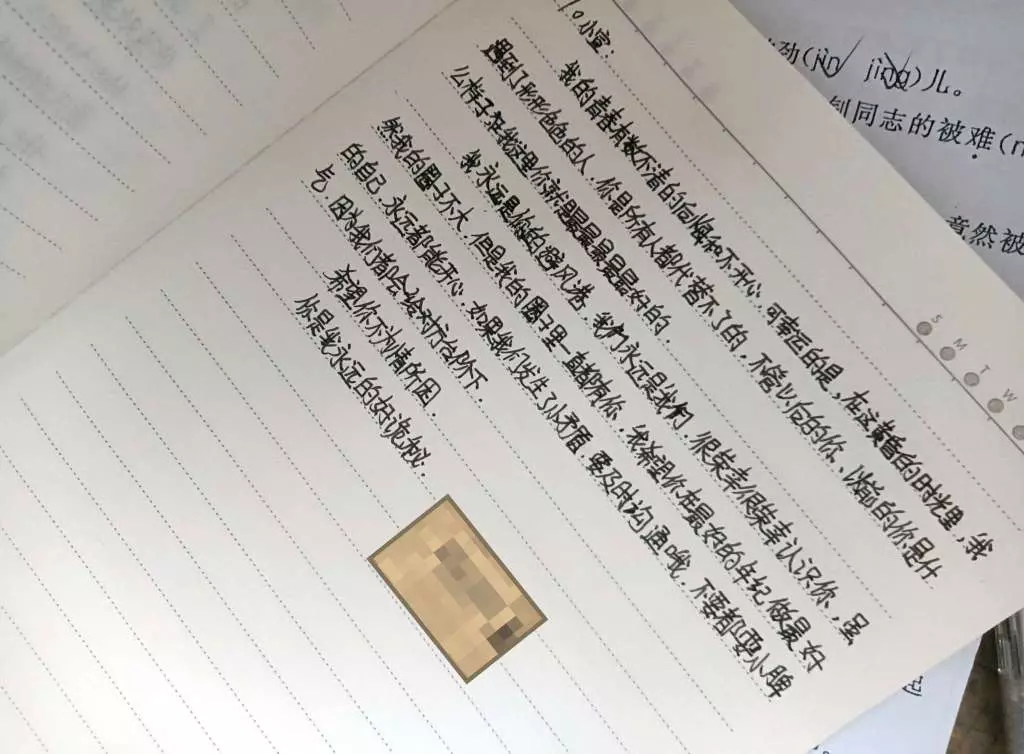 To 小宣：
我的青春有数不清的后悔和不开心，可幸运的是，在这黄昏的时光里，我
遇到了形形色色的人，你是所有人都代替不了的，不管以后的你、以前的你是什
么样子在我这里你就是最最最最最最好的．
我永远是你的避风港，我们永远是我们．很荣幸很荣幸认识你，虽
然我的圈子不大，但是我的圈子里一直都有你．我希望你在最好的年纪做最好
的自己，永远都能开心．如果我们发生了小矛盾，要及时沟通哦，不要都耍小脾
气，因为我们都会给对方台阶下．
希望你不为情所困．
你是我永远的好闺秘．
劲(jìn jìng)儿。
刨同志的被难(n
竟然被
S M T W